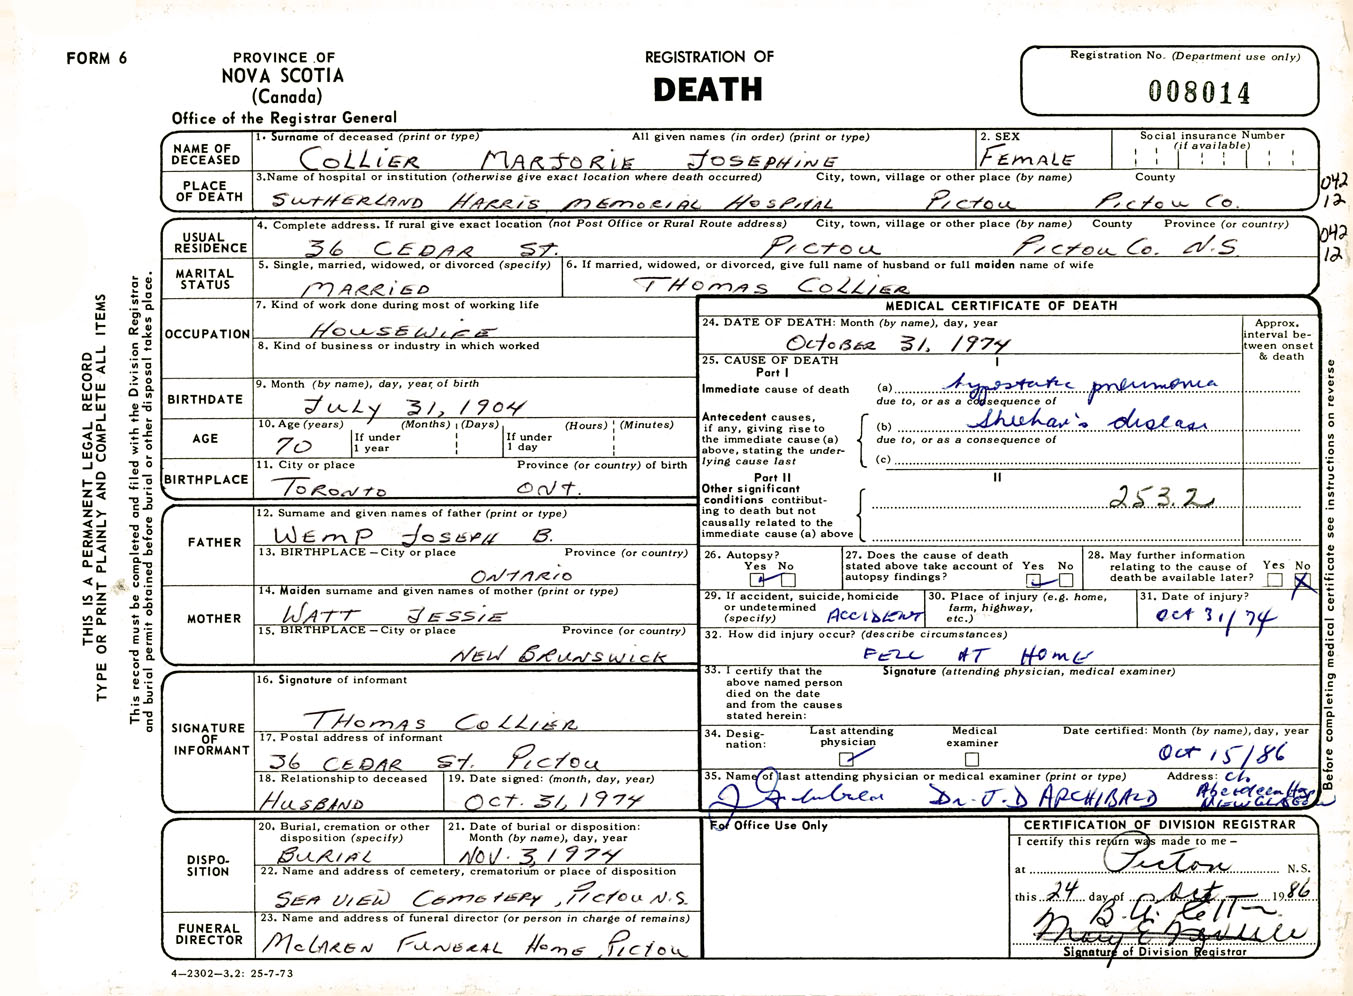 FORM 6
PROVINCE OF
NOVA SCOTIA
(Canada)
Office of the Registrar General
REGISTRATION OF
DEATH
Registration No. (Department use only)
008014
NAME OF DECEASED
1. Surname of deceased (print or type) All given names (in order) (print or type)
COLLIER MARJORIE JOSEPHINE
2. SEX
FEMALE
Social insurance Number
(if available)
PLACE OF DEATH
3.Name of hospital or institution (otherwise give exact location where death occurred) City, town, village or other place (by name) County
SUTHERLAND HARRIS MEMORIAL HOSPITAL PICTOU PICTOU CO.
042
12
USUAL RESIDENCE
4. Complete address. If rural give exact location (not Post Office or Rural Route address) City, town, village or other place (by name) County Province (or country)
36 CEDAR ST. PICTOU PICTOU CO. N.S.
042
12
MARITAL STATUS
5. Single, married, widowed, or divorced (specify)
MARRIED
6. If married, widowed, or divorced, give full name of husband or full maiden name of wife
THOMAS COLLIER
OCCUPATION
7. Kind of work done during most of working life
HOUSEWIFE
8. Kind of business or industry in which worked
BIRTHDATE
9. Month (by name), day, year, of birth
JULY 31, 1904
AGE
10. Age (years) (Months) (Days) (Hours) (Minutes)
70
If under
1 year
If under
1 day
BIRTHPLACE
11. City or place Province (or country) of birth
TORONTO ONT.
FATHER
12. Surname and given names of father (print or type)
WEMP JOSEPH B.
13. BIRTHPLACE – City or place Province (or country)
ONTARIO
MOTHER
14. Maiden surname and given names of mother (print or type)
WATT JESSIE
15. BIRTHPLACE – City or place Province (or country)
NEW BRUNSWICK
SIGNATURE OF INFORMANT
16. Signature of informant
THOMAS COLLIER
17. Postal address of informant
36 CEDAR ST. PICTOU
18. Relationship to deceased
HUSBAND
19. Date signed: (month, day, year)
OCT. 31, 1974
DISPO-
SITION
20. Burial, cremation or other
disposition (specify)
BURIAL
21. Date of burial or disposition:
Month (by name), day, year
NOV. 3, 1974
22. Name and address of cemetery, crematorium or place of disposition
SEA VIEW CEMETERY, PICTOU N.S.
FUNERAL DIRECTOR
23. Name and address of funeral director (or person in charge of remains)
MCLAREN FUNERAL HOME, PICTOU
4–2302–3.2: 25-7-73
MEDICAL CERTIFICATE OF DEATH
24. DATE OF DEATH: Month (by name), day, year
OCTOBER 31, 1974
Approx.
interval be-
tween onset
& death
25. CAUSE OF DEATH
Part I
I
Immediate cause of death
(a) hypostatic pneumonia
due to, or as a consequence of
Antecedent causes,
if any, giving rise to
the immediate cause (a)
above, stating the under-
lying cause last
(b) Sheehan's disease
due to, or as a consequence of
(c)
Part II
II
Other significant
conditions contribut-
ing to death but not
causally related to the
immediate cause (a) above
253.2
26. Autopsy?
Yes No
27. Does the cause of death
stated above take account of
autopsy findings?
Yes No
28. May further information
relating to the cause of
death be available later?
Yes No
X
29. If accident, suicide, homicide
or undetermined
(specify)
ACCIDENT
30. Place of injury (e.g. home,
farm, highway,
etc.)
31. Date of injury?
Oct 31/74
32. How did injury occur? (describe circumstances)
FELL AT HOME
33. I certify that the
above named person
died on the date
and from the causes
stated herein:
Signature (attending physician, medical examiner)
34. Desig-
nation:
Last attending
physician
Medical
examiner
Date certified: Month (by name), day, year
Oct 15/86
35. Name of last attending physician or medical examiner (print or type) Address:
Dr. J. D ARCHIBALD
Aberdeen Hosp
NEW GLASGOW
For Office Use Only
CERTIFICATION OF DIVISION REGISTRAR
I certify this return was made to me –
at Pictou N.S.
this 24 day of Oct 1986
Signature of Division Registrar
THIS IS A PERMANENT LEGAL RECORD
TYPE OR PRINT PLAINLY AND COMPLETE ALL ITEMS
This record must be completed and filed with the Division Registrar
and burial permit obtained before burial or other disposal takes place.
Before completing medical certificate see instructions on reverse